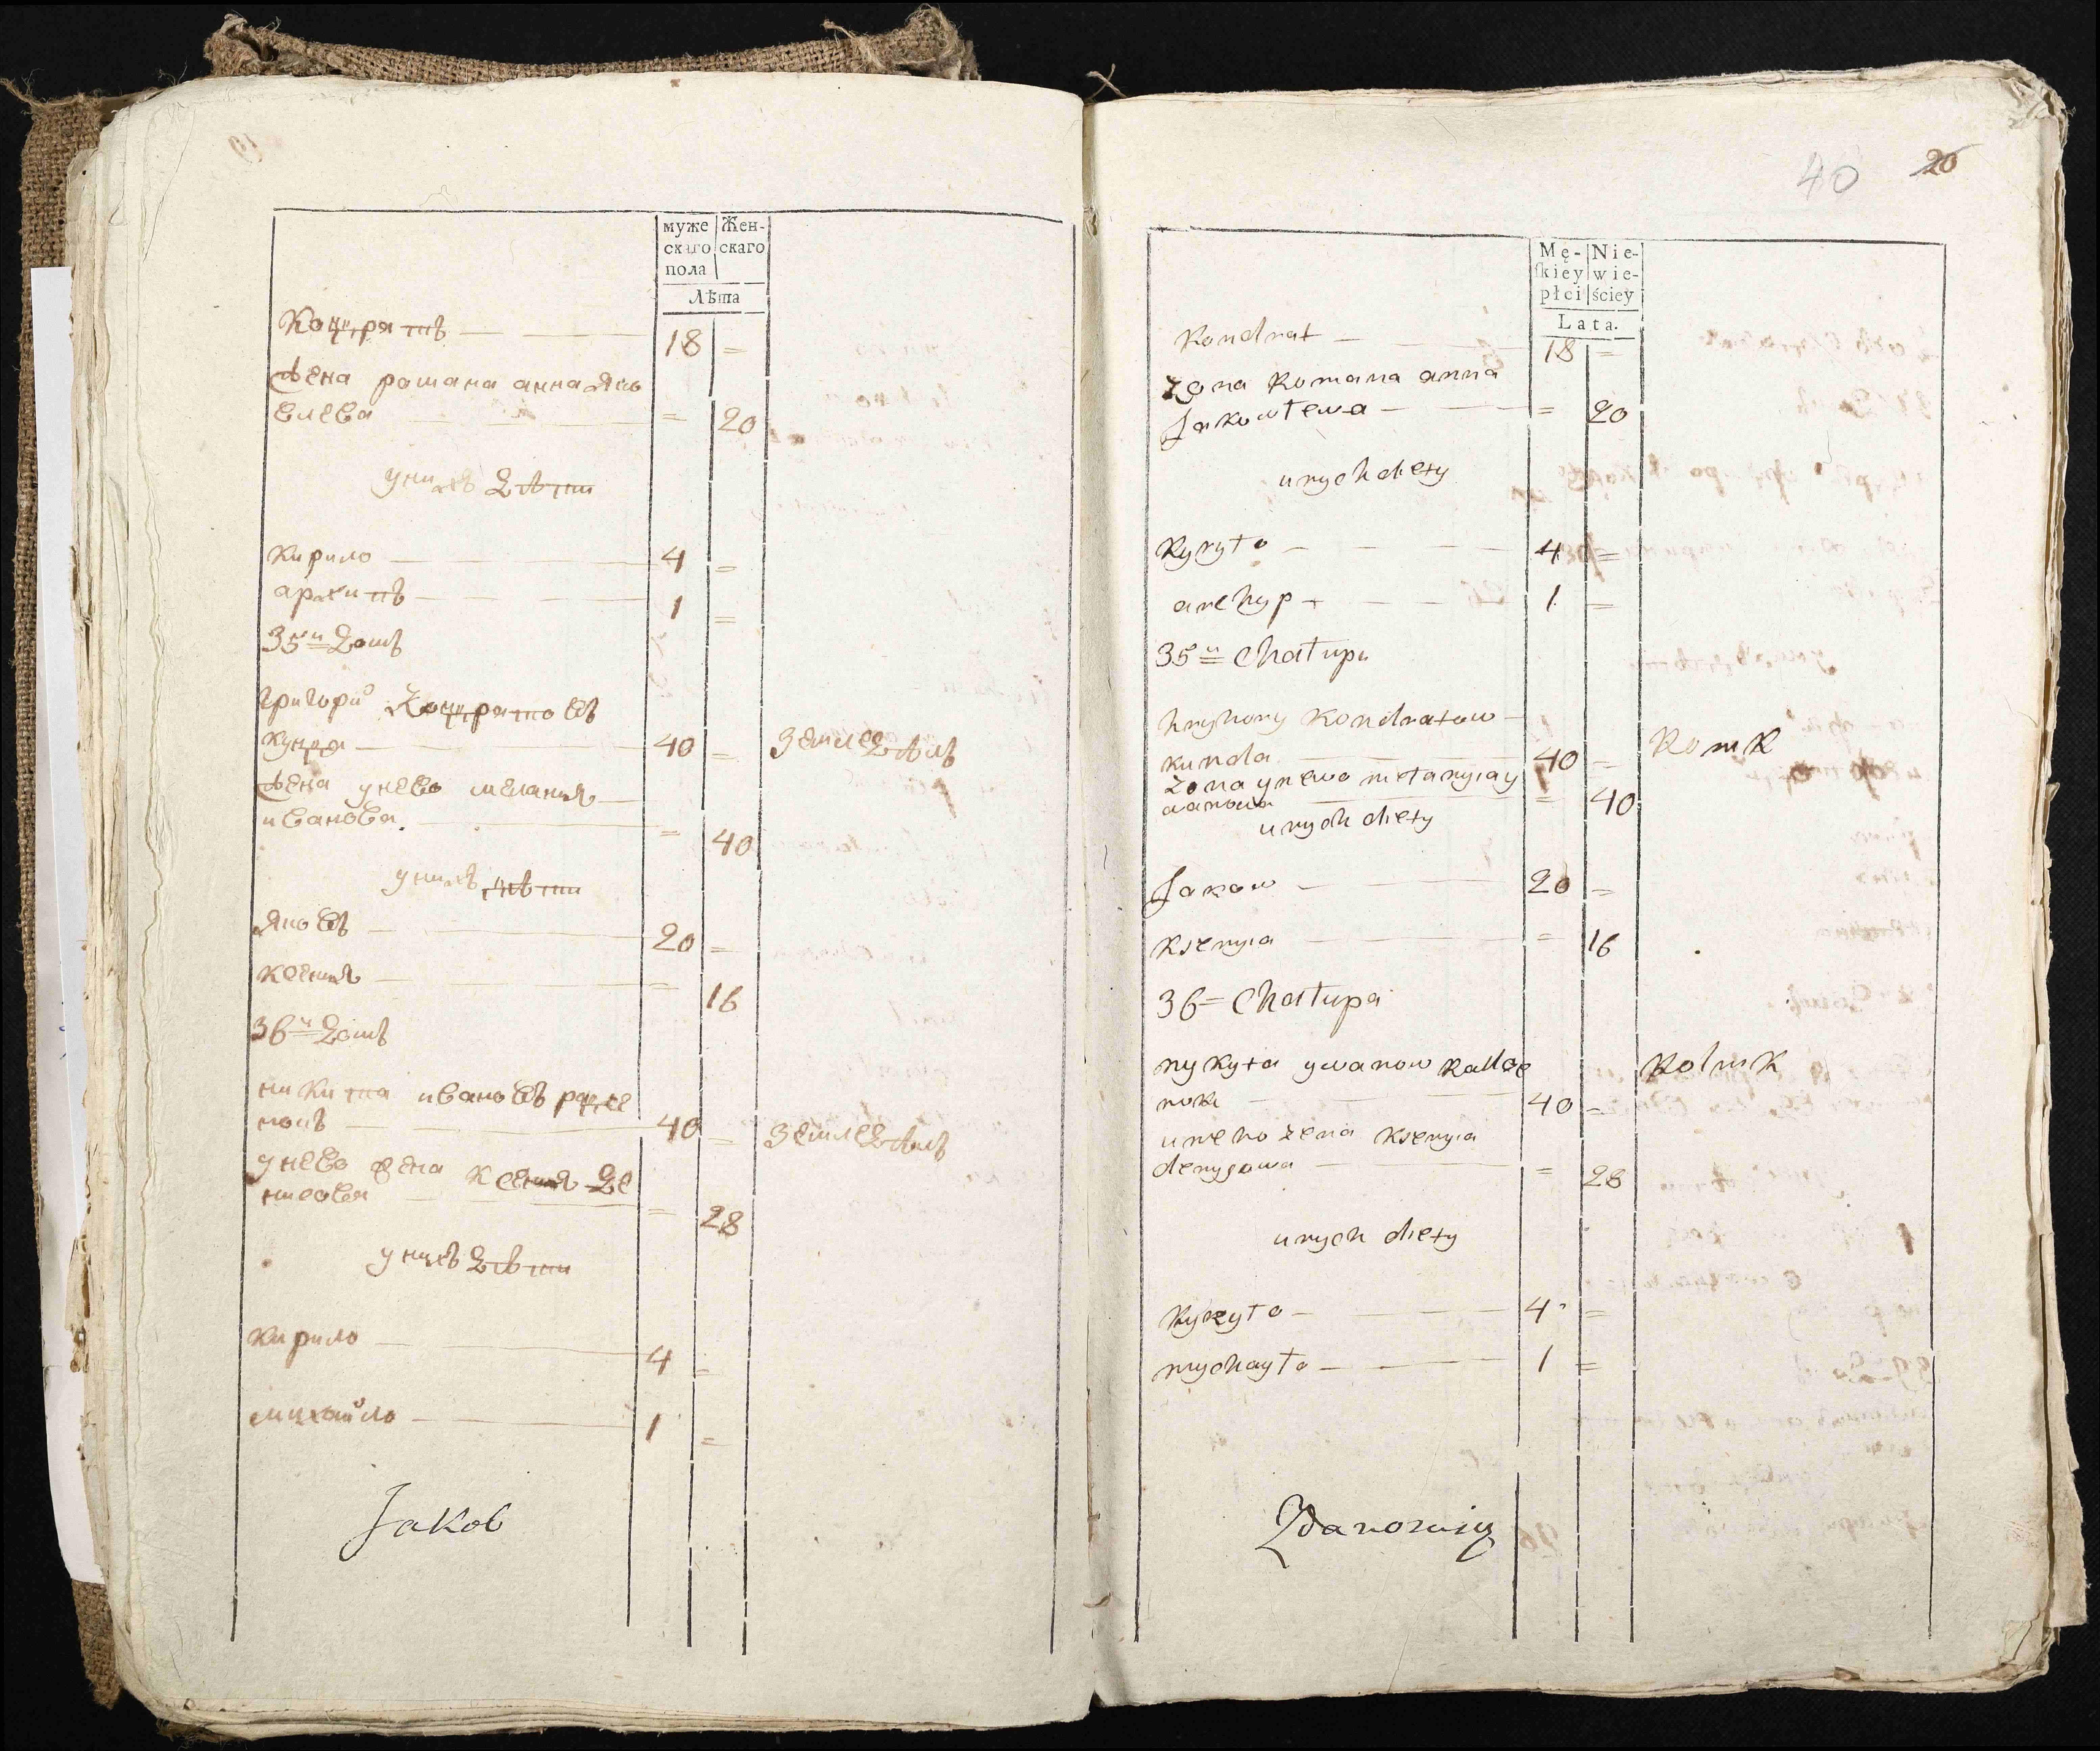 муже
скаго
пола
Жен-
скаго
Лѣта
Кондратъ 18 =
Жена романа анна Яко
влева = 20
у нихъ дѣти
Кирило 4 =
архипъ 1 =
35и домъ
григори Кондратовъ
кунда 40 = земледѣлъ
Жена у нево мелания
иванова = 40
у нихъ дѣти
Яковъ 20 =
ксения = 16
36и домъ
никита ивановъ
40 = земледѣлъ
у нево жена ксения де
нисова = 28
у нихъ дѣти
Кирило 4 =
михайло 1 =
Jakob
40 20
Mę-
ſkiey
płci
Nie-
wie-
ściey
Lata.
Kondrat 18 =
żona Romana anna
Jakowlewa = 20
unych diety
Kyryło 4 =
archyp 1 =
35u Chałupa
hryhory Kondratow
kunda 40 = Rolnik
żona ynewo mełanyiay
= 40
unych diety
Jakow 20 =
Ksenyia = 16
36 = Chałupa
nykyta ywanow Radce
40 = Rolnik
uneho żena Ksenyia
denysowa = 28
unych diety
Kyryło 4 =
mychayło 1 =
Zdanowicz